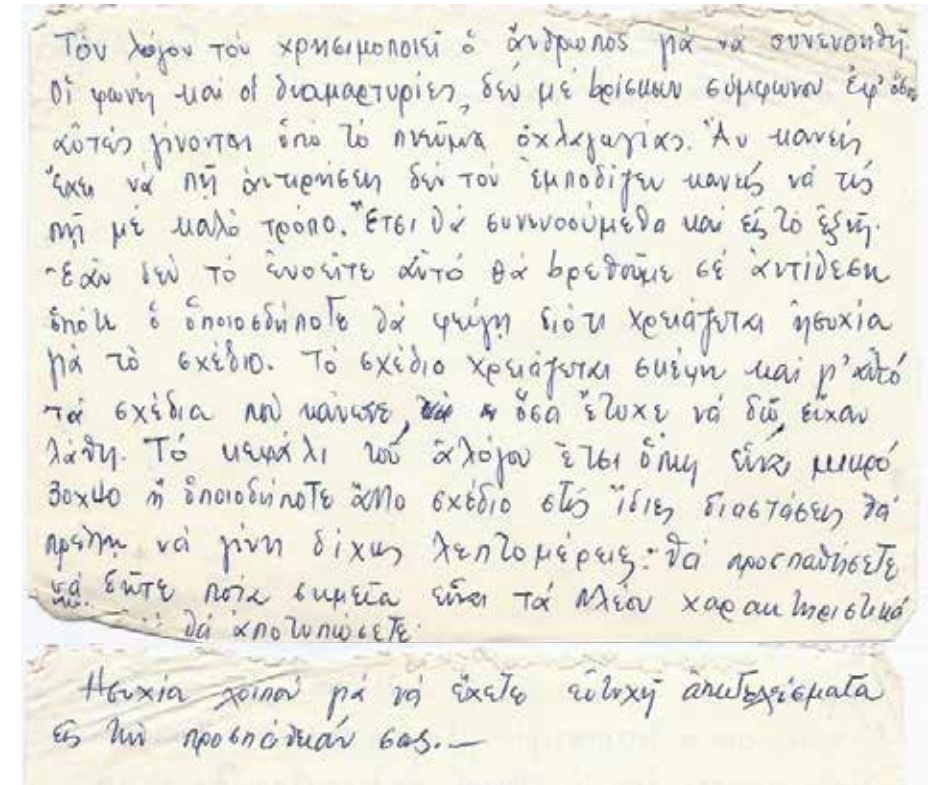 Τὸν λόγον τὸν χρησιμοποιεῖ ὁ ἄνθρωπος γιὰ νὰ συνεννοηθῆ.
Οἱ φωνὴ καὶ οἱ διαμαρτυρίες, δὲν μὲ βρίσκουν σύμφωνον ἐφ' ὅσον
αὐτὲς γίνονται ὑπὸ τὸ πνεῦμα ὀχλαγωγίας. Ἂν κανεὶς
ἔχει νὰ πῇ ἀντιρήσεις δὲν τὸν ἐμποδίζει κανεὶς νὰ τὶς
πῇ μὲ καλὸ τρόπο. Ἔτσι θὰ συνενοούμεθα καὶ εἰς τὸ ἑξῆς.
Ἐὰν δὲν τὸ ἐνοεῖτε αὐτὸ θὰ βρεθοῦμε σὲ ἀντίθεση
ὁπότε ὁ ὁποιοσδήποτε θὰ φεύγη διότι χρειάζεται ἡσυχία
γιὰ τὸ σχέδιο. Τὸ σχέδιο χρειάζεται σκέψη καὶ γι' αὐτὸ
τὰ σχέδια ποὺ κάνατε, ὅσα ἔτυχε νὰ δῶ, εἶχαν
λάθη. Τὸ κεφάλι τοῦ ἀλόγου ἔτσι ὅπως εἶναι μικρὸ
30χ40 ἢ ὁποιοδήποτε ἄλλο σχέδιο στὶς ἴδιες διαστάσεις θὰ
πρέπει νὰ γίνη δίχως λεπτομέρειες. θὰ προσπαθήσετε
νὰ δῆτε ποῖα σημεῖα εἶναι τὰ πλέον χαρακτηριστικὰ
θὰ ἀποτυπώσετε.
Ἡσυχία λοιπὸν γιὰ νὰ ἔχετε εὐτυχῆ ἀποτελέσματα
εἰς τὴν προσπάθειάν σας.—